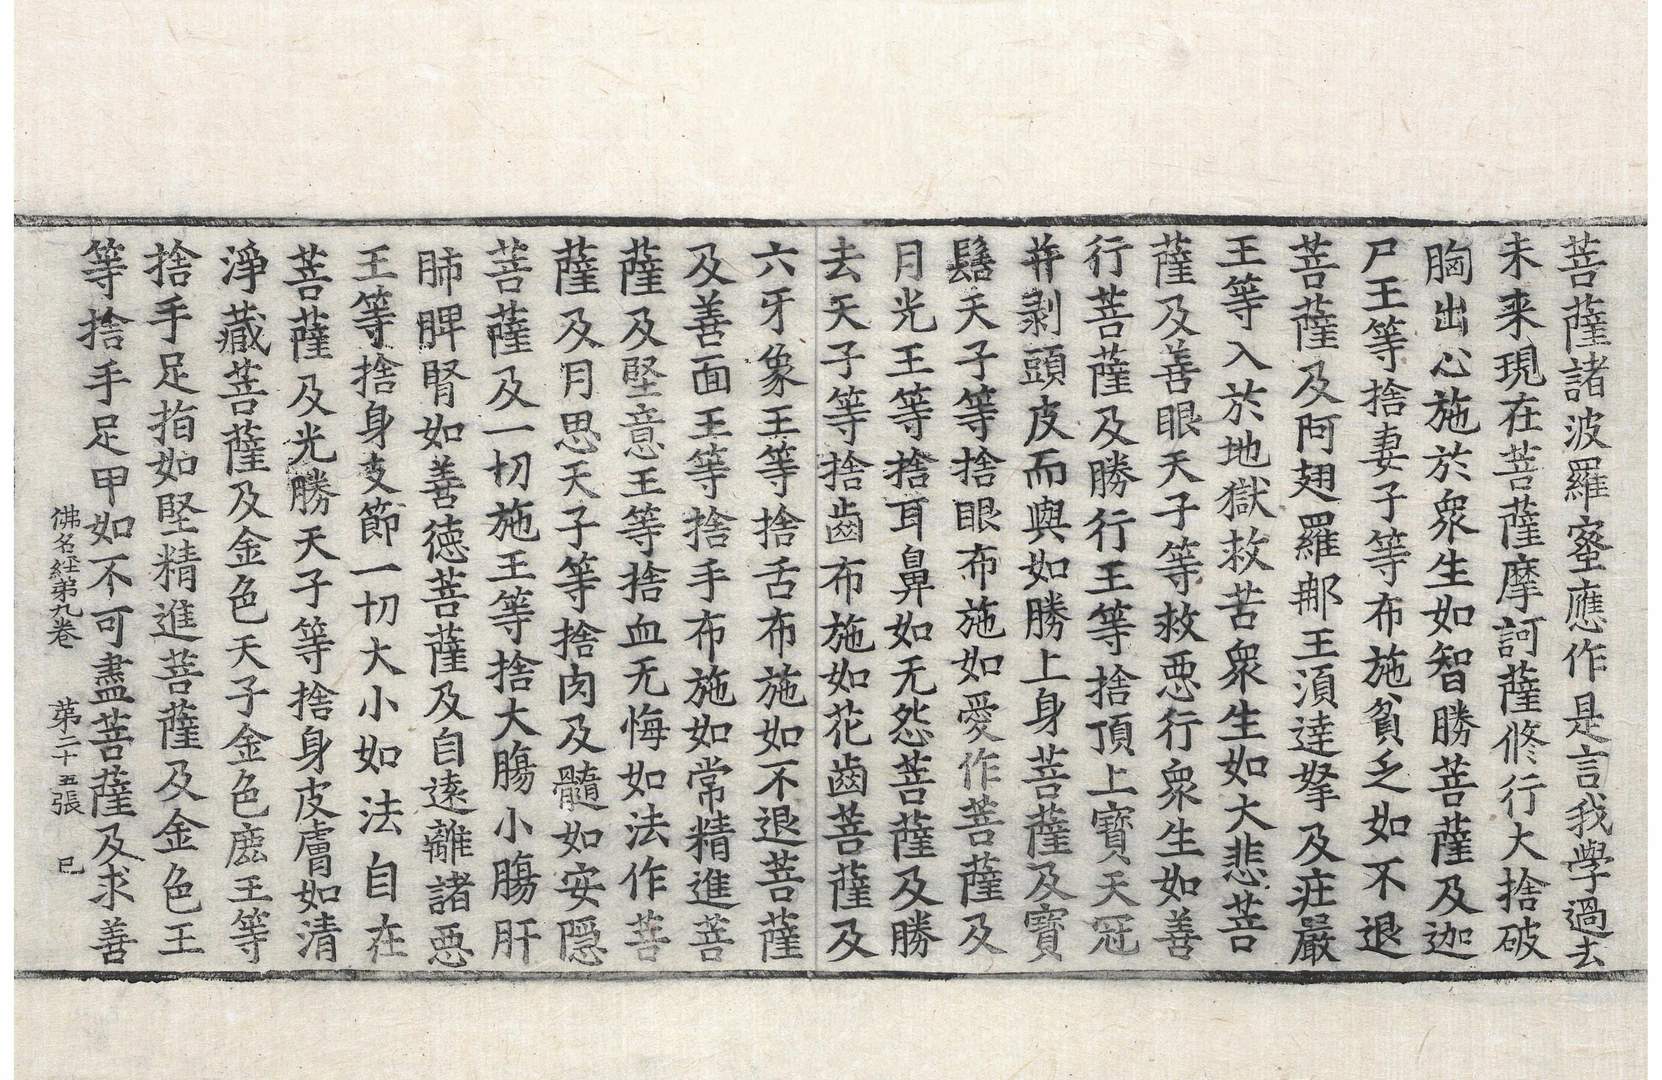 菩薩諸波羅蜜應作是言我學過去
未来現在菩薩摩訶薩修行大捨破
胸出心施於衆生如智勝菩薩及迦
尸王等捨妻子等布施貧乏如不退
菩薩及阿翅羅郍王湏達拏及庄嚴
王等入於地獄救苦衆生如大悲菩
薩及善眼天子等救悪行衆生如善
行菩薩及勝行王等捨頂上寶天冠
并剥頭皮而與如勝上身菩薩及寶
髻天子等捨眼布施如愛作菩薩及
月光王等捨耳鼻如无怨菩薩及勝
去天子等捨齒布施如花齒菩薩及
六牙象王等捨舌布施如不退菩薩
及善面王等捨手布施如常精進菩
薩及堅意王等捨血无悔如法作菩
薩及月思天子等捨肉及髓如安隠
菩薩及一切施王等捨大膓小膓肝
肺脾腎如善徳菩薩及自遠離諸悪
王等捨身支節一切大小如法自在
菩薩及光勝天子等捨身皮膚如清
淨藏菩薩及金色天子金色鹿王等
捨手足指如堅精進菩薩及金色王
等捨手足甲如不可盡菩薩及求善
佛名経第九卷 第二十五張 巳